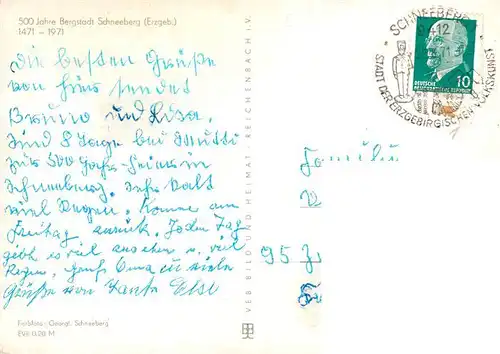 500 Jahre Bergstadt Schneeberg (Erzgeb.)
1471 – 1971
Die besten Grüße
von hier sendet
Bruno und Lisa.
Sind 8 Tage bei Mutti
zur 500 Jahr-Feier in
Schneeberg. Sehr kalt
viel Regen. Komme am
Freitag zurück. Jeden Tag
gibt es viel ansehen u. viel
Regen, Oma viele
Grüße von Tante Else
Farbfoto: Georgi, Schneeberg
0.20 M
VEB BILD UND HEIMAT · REICHENBACH I. V.
SCHNEEBERG
9412
STADT DER ERZGEBIRGISCHEN VOLKSKUNST
10
DEUTSCHE
DEMOKRATISCHE REPUBLIK
Familie
95